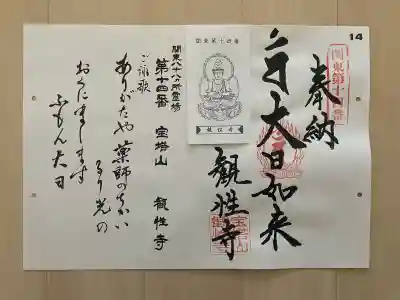 14
奉納
関東第十四番
大日如来
観性寺
関東第十四番
観性寺
関東八十八カ所霊場
第十四番 宝塔山 観性寺
ご詠歌
ありがたや 薬師のちかい
るり光の
おくにまします
ふもん大日